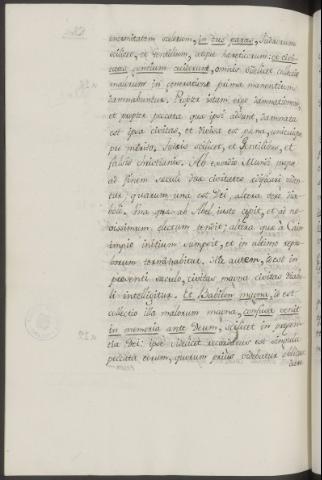 enormitatem scelerum, in tres partes, Judæorum
scilicet, et Gentilium, atque hæreticorum; et civi-
tates gentium ceciderunt, omnis videlicet collectio
malorum in generatione prima manentium
damnabuntur. Propter istam ergo damnationem,
et propter peccata quæ ipsi agunt, damnata
est ipsa civitas, et divisa est pœna, unicuique
pro merito, Judæis scilicet, et Gentilibus, et
falsis christianis. Ab exordio Mundi usque
ad finem sæculi duæ civitates ædificari viden-
tur: quarum una est Dei, altera vero dia-
boli. Una quæ ab Abel justo cepit, et ad no-
vissimum electum tendit; altera quæ à Cain
impio initium sumpsit, et in ultimo repro-
borum terminabitur. Ista autem, id est in
presenti sæculo, civitas magna civitas diabo-
li intelligitur. Et Babilon magna, id est
collectio illa malorum magna, confusa venit
in memoria ante Deum, scilicet in præsen-
tia Dei: ipse videlicet recordatus est singula
peccata eorum, quorum prius videbatur